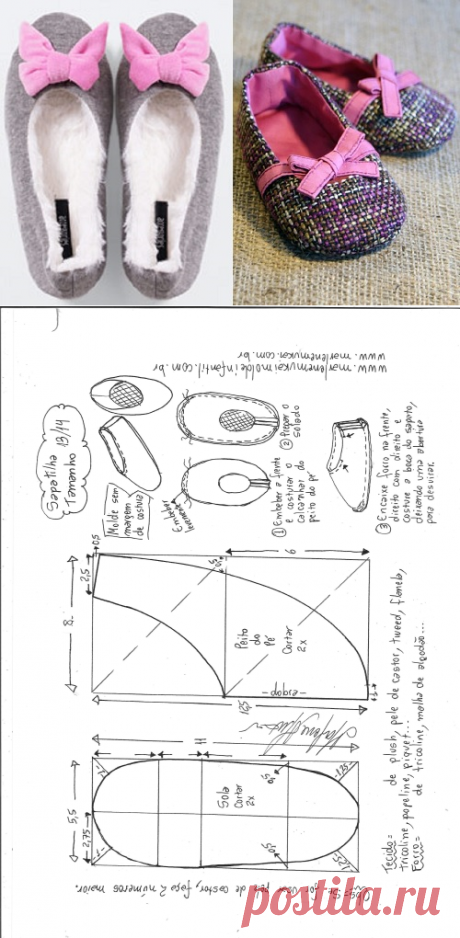 www.marlenemukai.com.br
www.marlenemukaimoldeinfantil.com.br
Sapatilha
Tamanho 13/14
Molde sem
margem
de costura
Embeber
levemente
① Embeber a frente
e costurar o
calcanhar do
peito do pé
② Pregar o
solado
③ Encaixe forro na frente,
direito com direito e
costure a boca do sapato,
deixando uma abertura
para desvirar.
0,5
2,5
8
6
0,5
Peito
do
Pé
Cortar
2x
-dobra-
12,5
11
5,5
2,75
Sola
Cortar
2x
0,5
0,5
1,25
1,25
Tecido= de plush, pele de castor, tweed, flanela,
tricoline, popeline, piquet...
Forro= de tricoline, malha de algodão...
Obs= Se for usar pele de castor, faça 2 números maior.
postila.ru